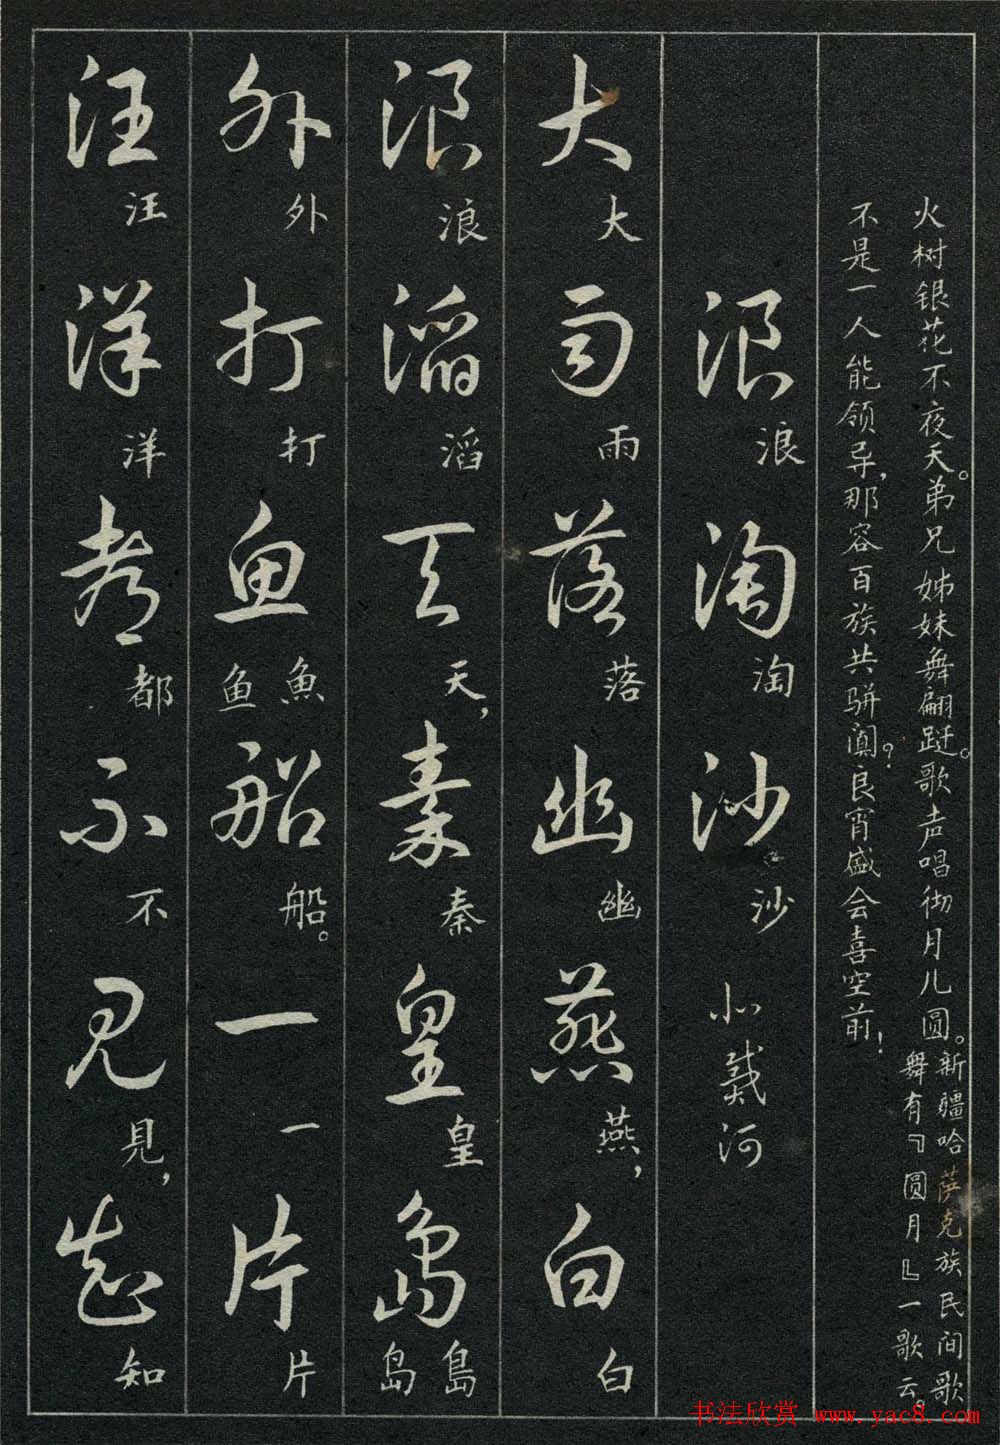 火树银花不夜天。弟兄姊妹舞翩跹。歌声唱彻月儿圆。
新疆哈萨克族民间歌
舞有『圆月』一歌云。
不是一人能领导,那容百族共骈阗?良宵盛会喜空前!
浪淘沙
浪淘沙 北戴河
大雨落幽燕白
大雨落幽燕,白
浪滔天秦皇岛
浪滔天,秦皇島岛
外打鱼船一片
外打魚鱼船。一片
汪洋都不见知
汪洋都不見,知
书法欣赏 www.yac8.com